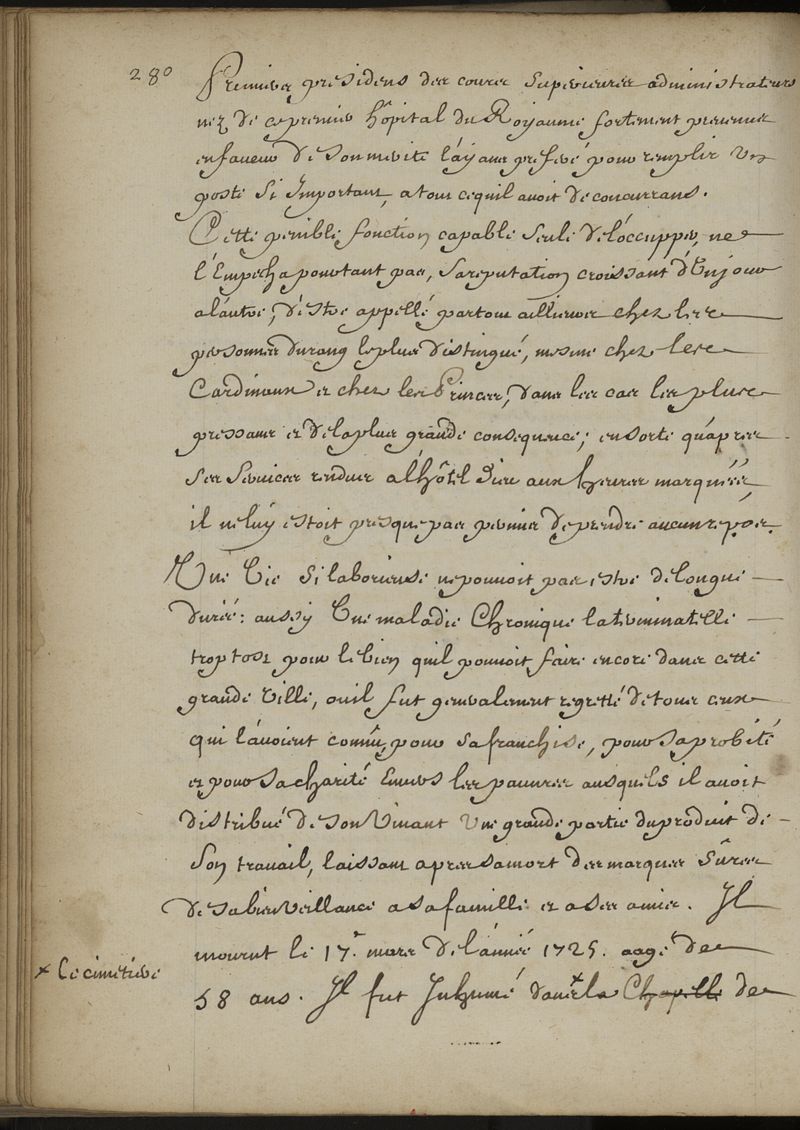 280
Premiers presidens des cours superieures administrateurs
nez de ce premier hôpital du Royaume fortement prevenus
en faveur de son merite l'ayant preferé pour remplir un
poste si important, a tout ce qu'il avoit de concurrans.
Cette penible fonction capable seule de l'occupper, ne
l'Empecha pourtant pas, sa reputation croissant d'Un jour
a l'autre, d'estre appellé partout ailleurs chez les
personnes du rang le plus distingué, mesme chez les
Cardinaux et chez les Princes, dans les cas les plus
pressans et de la plus grande consequence; en sorte qu'apres
ses services rendus a l'hôtel Dieu aux heures marquées,
il ne luy estoit presque pas permis de prendre aucun repos.
Une Vie si laborieuse ne pouvoit pas estre de longue
durée: aussy Une maladie Chronique la termina telle
trop tost pour le bien qu'il pouvoit faire encore dans cette
grande Ville, ou il fut generalement regretté de tous ceux
qui l'avoient connu, pour sa franchise, pour sa probité
et pour sa charité Envers les pauvres ausquels il avoit
distribué de son Vivant Une grande partie du produit de
son travail, laissant apres sa mort des marques sûres
de sa bienveillance a sa famille et a ses amis. Il
mourut le 17.e mars de l'année 1725. aagé de
x Le cimetiere
58 ans. Il fut Inhumé dans x la Chapelle de